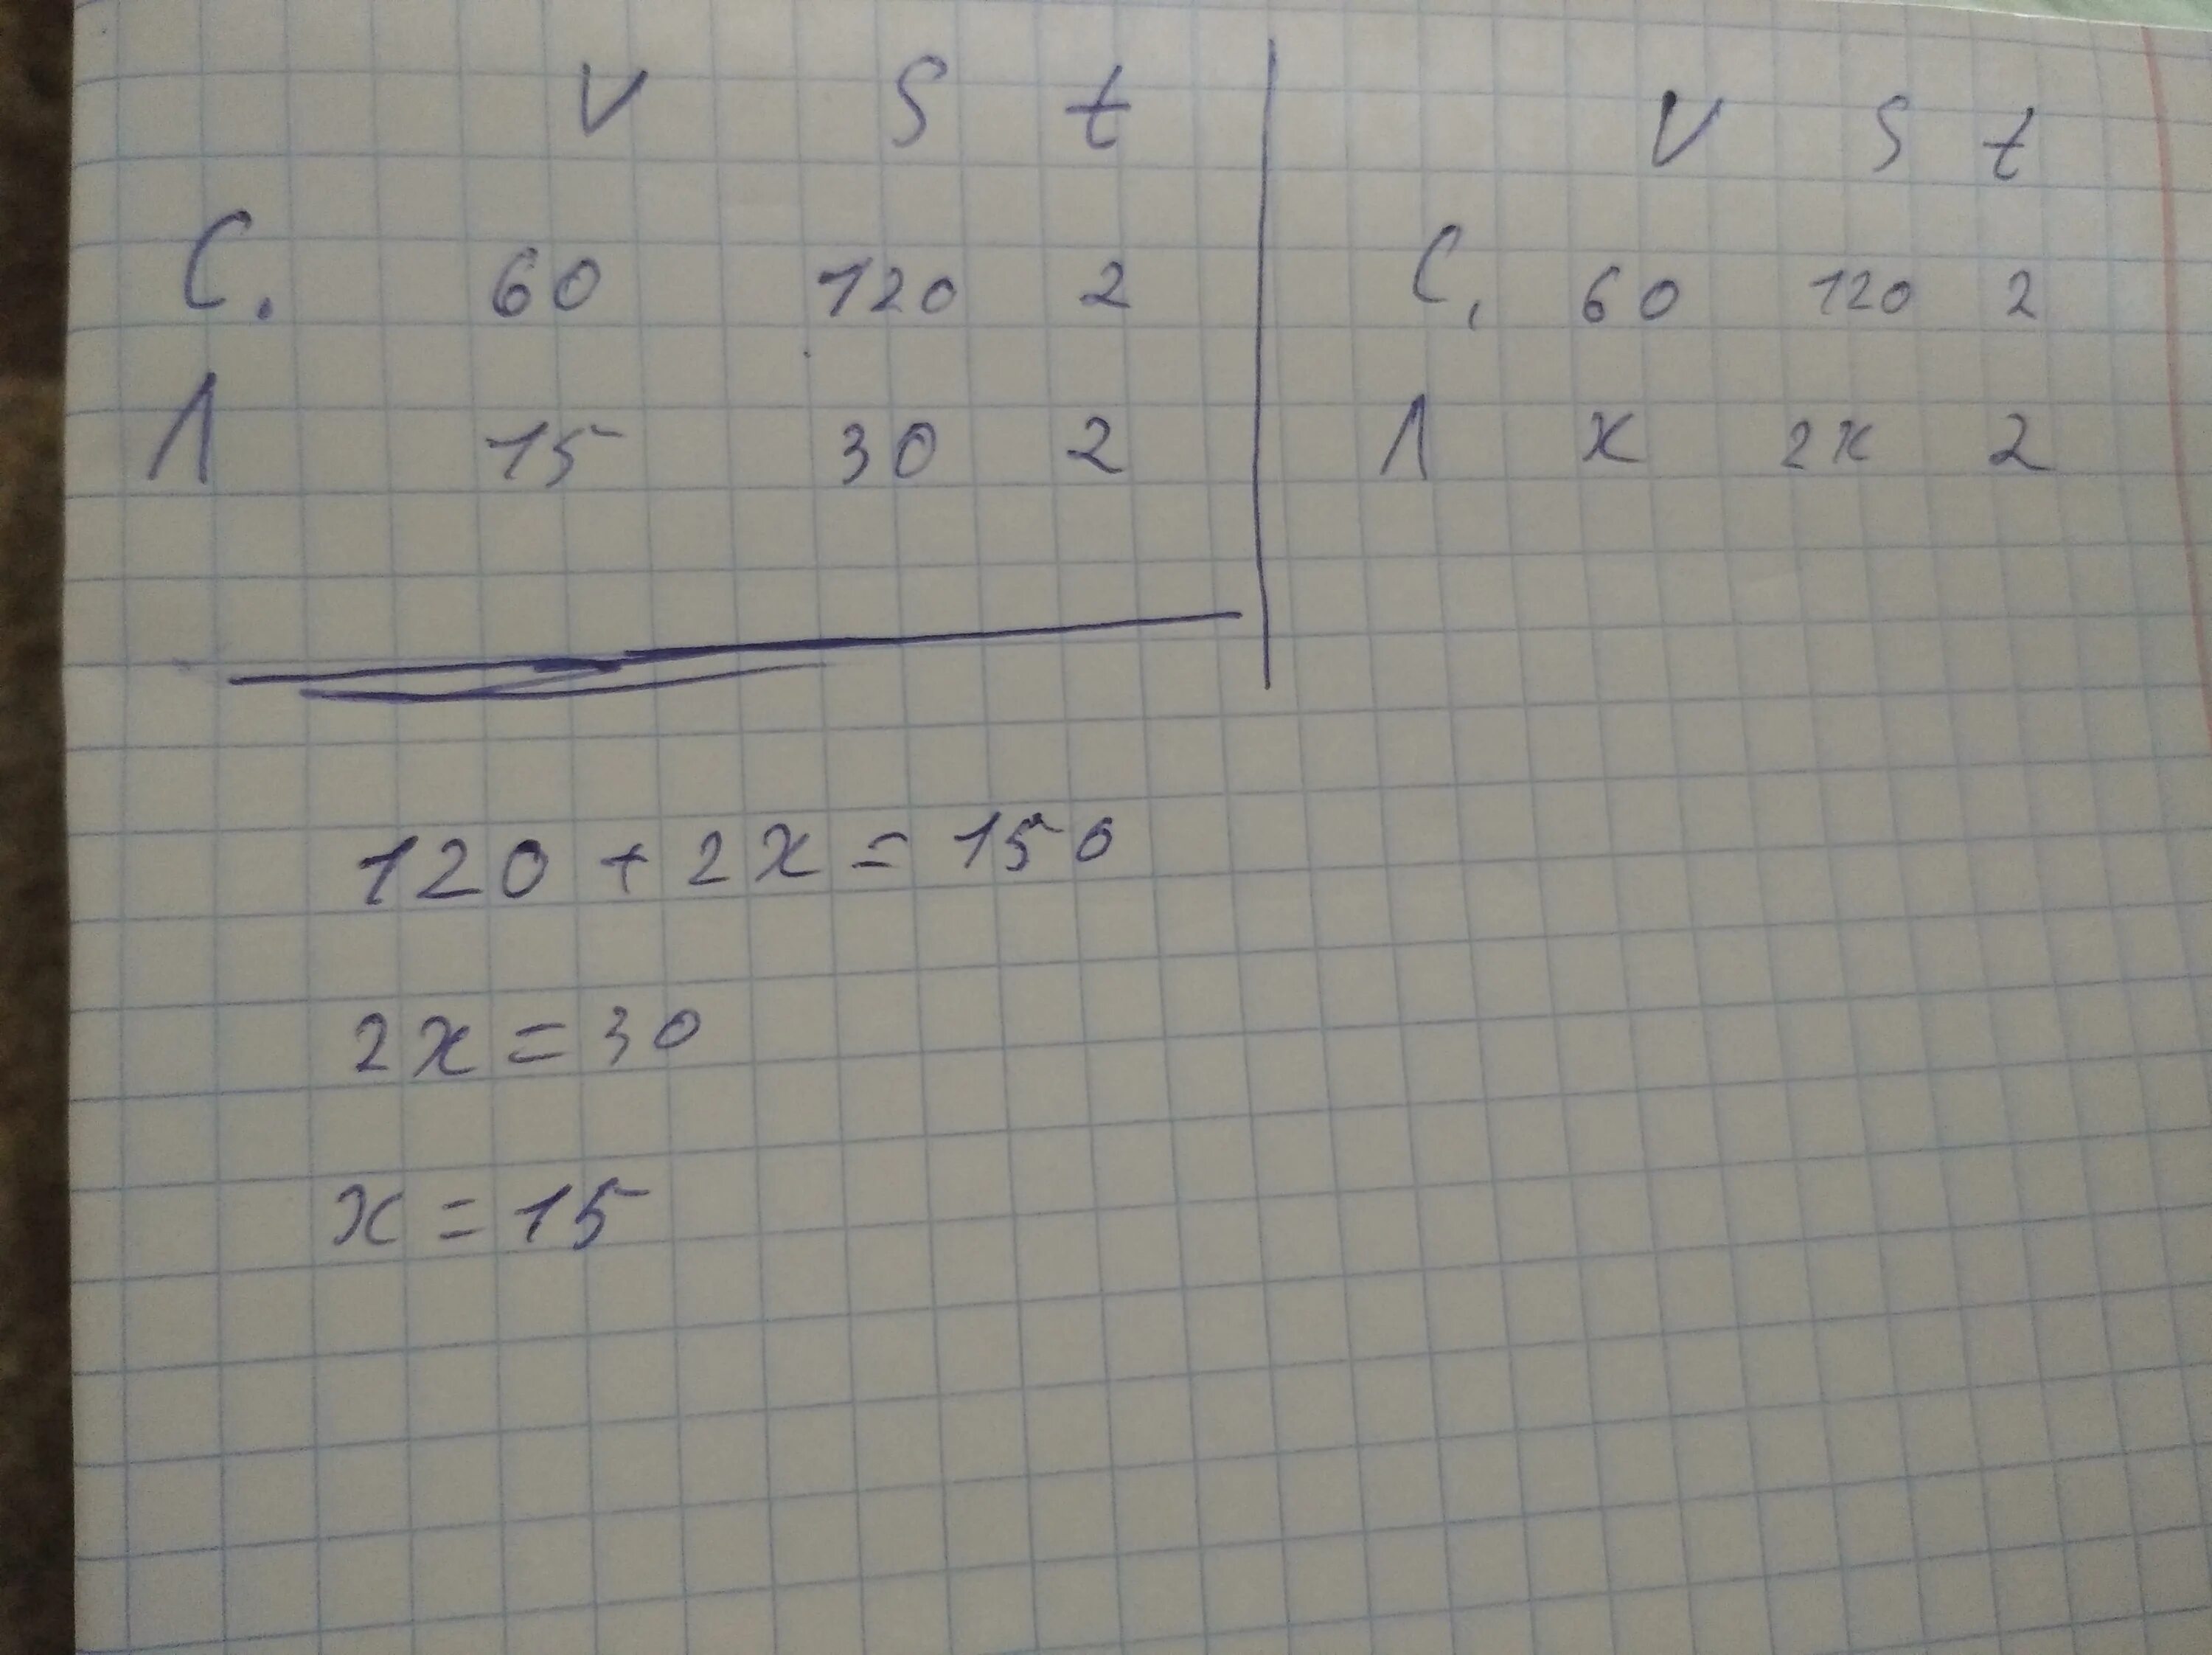 V S t
С. 60 120 2
Л 15 30 2
V S t
С. 60 120 2
Л x 2x 2
120 + 2x = 150
2x = 30
x = 15